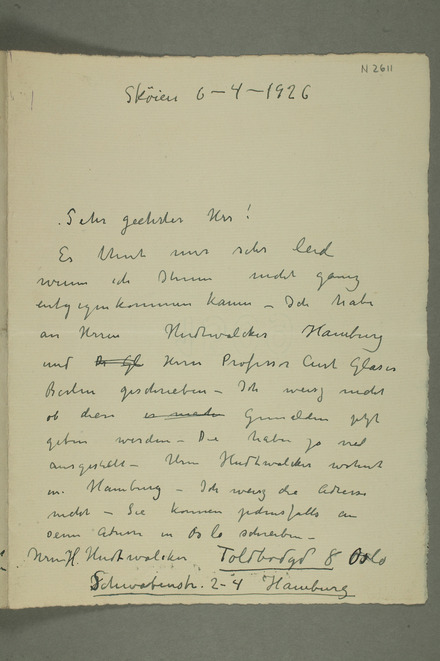 N 2611
Sköien 6-4-1926
Sehr geehrter Herr!
Es thut mir sehr leid
wenn ich Ihnen nicht ganz
entgegenkommen kann – Ich habe
an Herrn Hudtwalcker Hamburg
und Herrn Professor Curt Glaser
Berlin geschrieben – Ich weisz nicht
ob diese Gemälden jetzt
geben werden – Die haben ja viel
ausgestellt – Herr Hudtwalcker wohnt
in Hamburg – Ich weisz die Adresse
nicht – Sie können jedenfalls an
seine in Oslo schreiben –
H. Hudtwalcker Toldbodgd 8 Oslo
Schwabenstr. 2-4 Hamburg